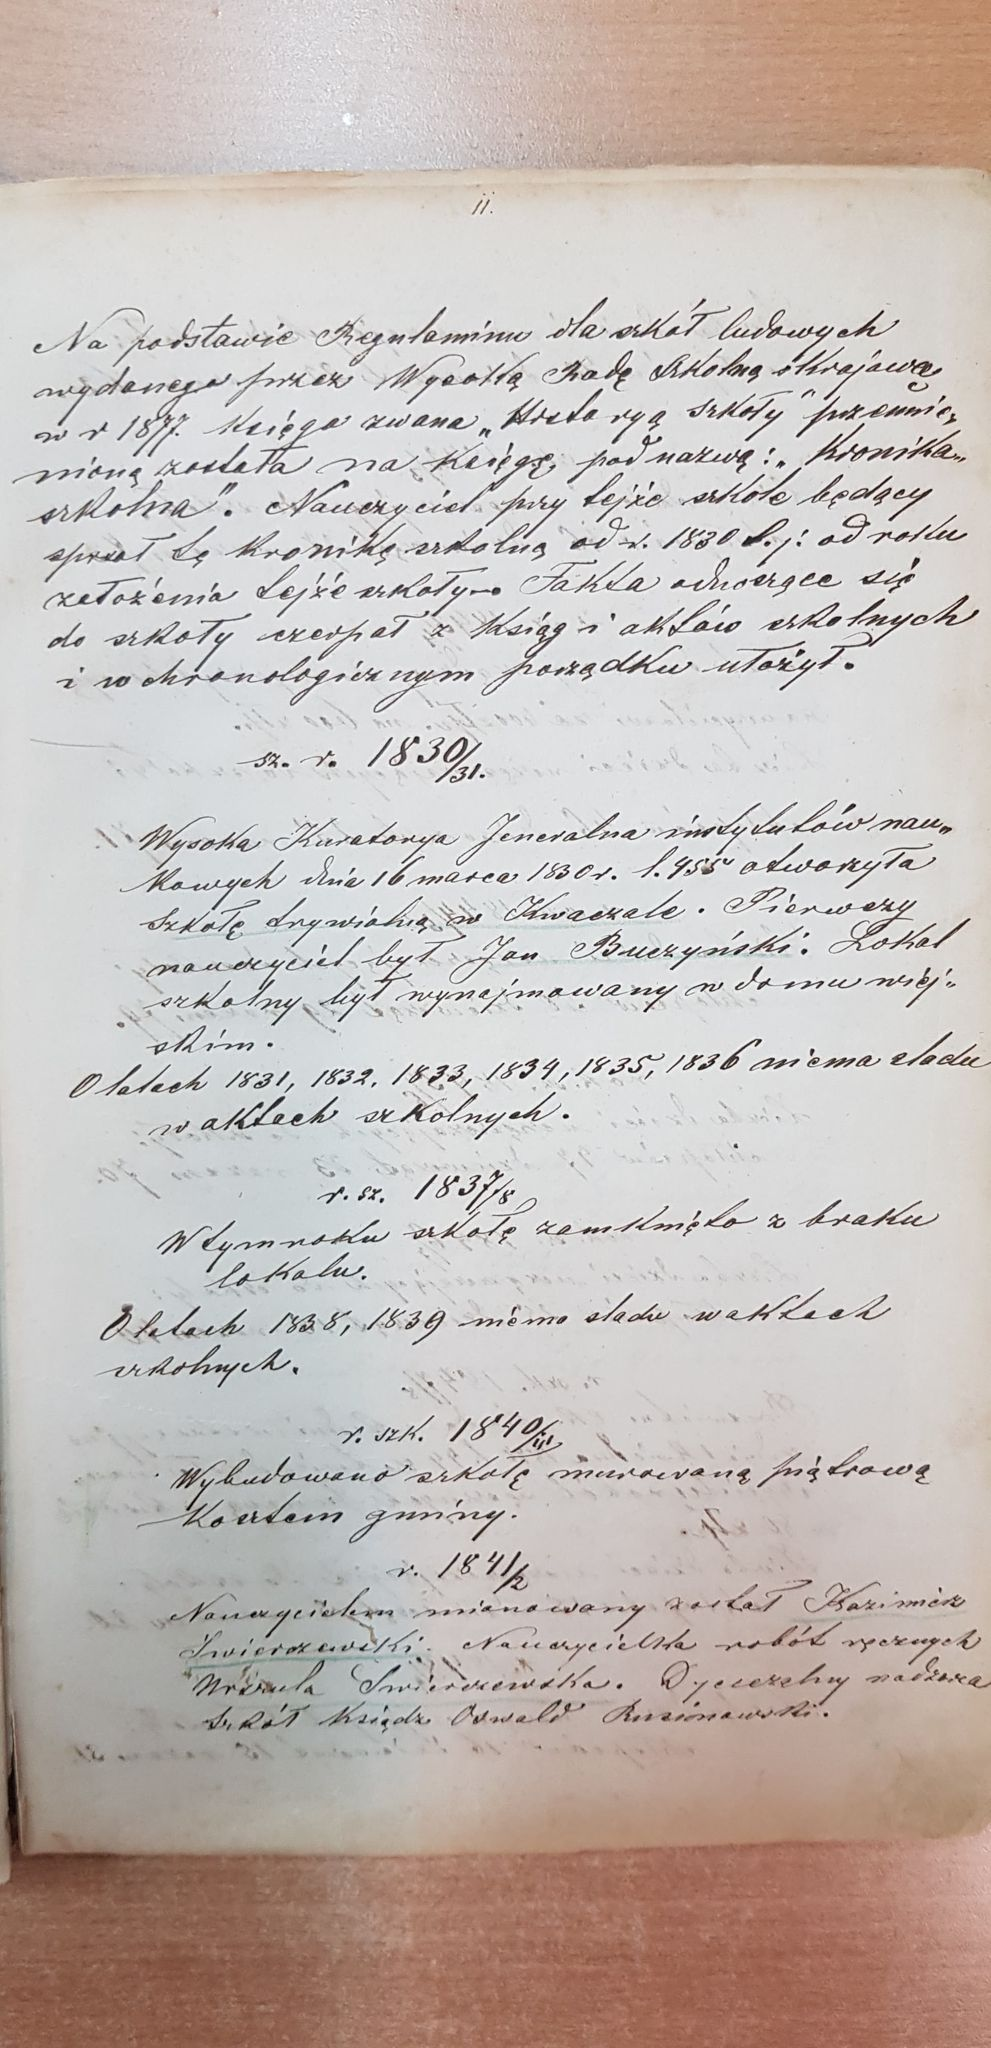 ii.
Na podstawie Regulaminu dla szkół ludowych
wydanego przez Wysoką Radę Szkolną okrajową
w r 1877. księga zwana „Historyą szkoły" przemie„
nioną została na księgę, pod nazwą: „Kronika„
szkolna". Nauczyciel przy tejże szkole będący
spisał tę kronikę szkolną od r. 1830 t. j: od roku
założenia tejże szkoły. Fakta odnoszące się
do szkoły czerpał z ksiąg i aktów szkolnych
i w chronologicznym porządku ułożył.
sz. r. 1830/31.
Wysoka Kuratorya Jeneralna instytutów nau„
kowych dnia 16 marca 1830 r. l. 955 otworzyła
szkołę trywialną w Kwaczale. Pierwszy
nauczyciel był Jan Buczyński. Lokal
szkolny był wynajmowany w domu wiej„
skim.
O latach 1831, 1832, 1833, 1834, 1835, 1836 niema sladu
w aktach szkolnych.
r. sz. 1837/8
W tym roku szkołę zamknięto z braku
lokalu.
O latach 1838, 1839 niema sladu w aktach
szkolnych.
r. szk. 1840/41
Wybudowano szkołę murowaną piątrową
kosztem gminy.
r. 1841/2
Nauczycielem mianowany został Kazimierz
Świerczewski. Nauczycielka robót ręcznych
Urszula Świerczewska. Dyecezalny nadzorca
szkół ksiądz Oswald Rusinowski.